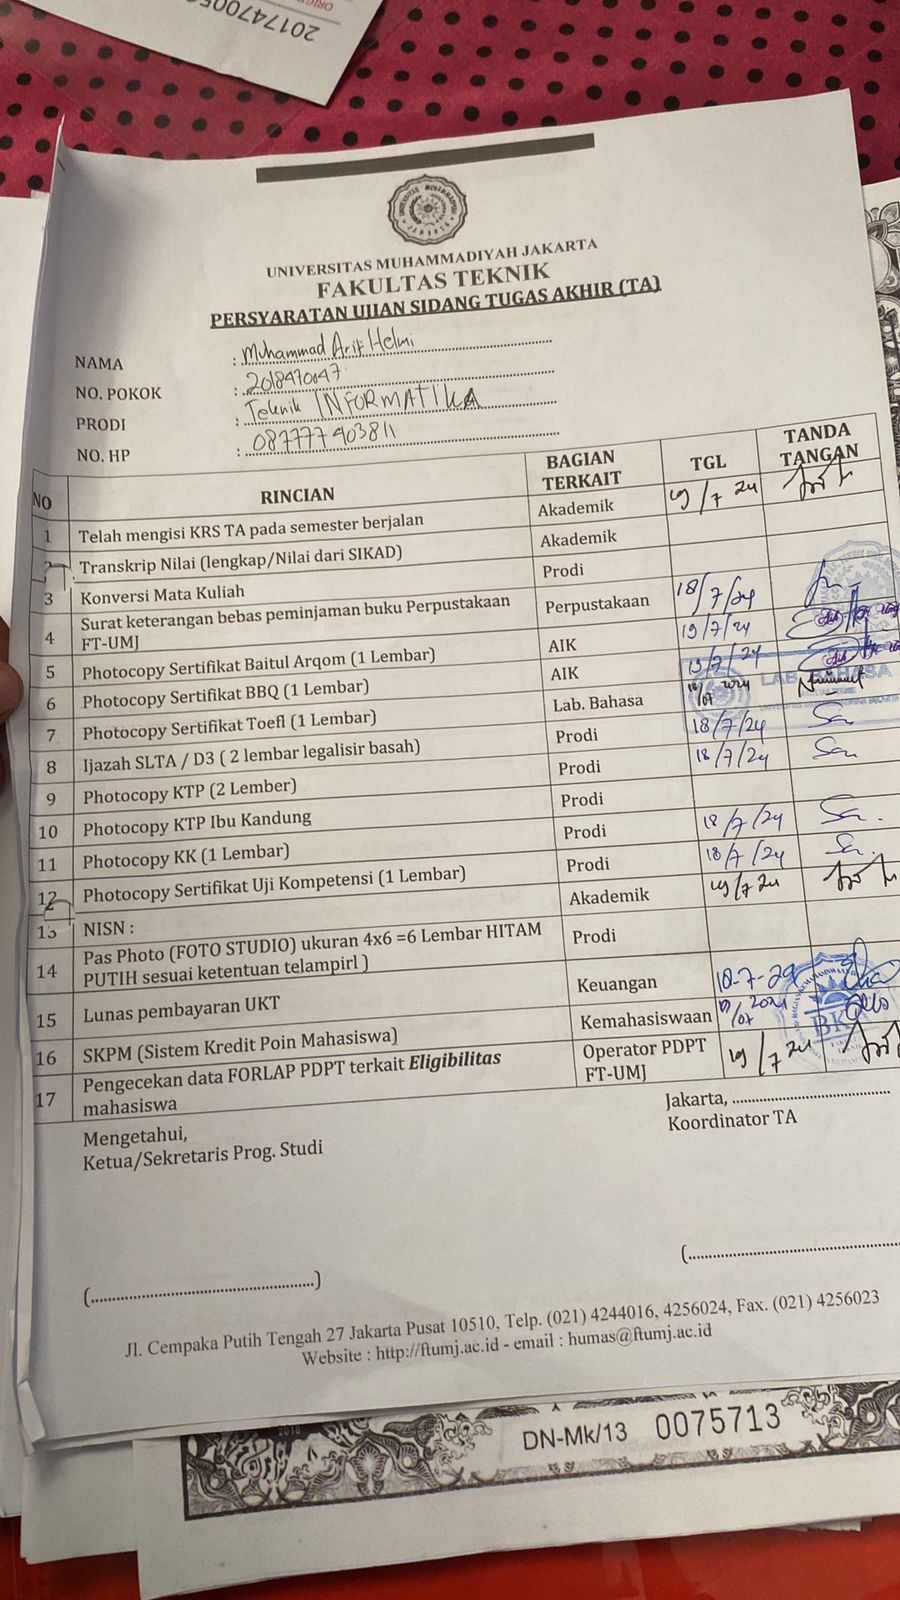 201747005
UNIVERSITAS MUHAMMADIYAH JAKARTA
FAKULTAS TEKNIK
PERSYARATAN UJIAN SIDANG TUGAS AKHIR (TA)
NAMA : Muhammad Arif Helmi
NO. POKOK : 2018470047
PRODI : Teknik INFORMATIKA
NO. HP : 087777403811
NO RINCIAN BAGIAN TERKAIT TGL TANDA TANGAN
1 Telah mengisi KRS TA pada semester berjalan Akademik 19/7 24
2 Transkrip Nilai (lengkap/Nilai dari SIKAD) Akademik
3 Konversi Mata Kuliah Prodi
4 Surat keterangan bebas peminjaman buku Perpustakaan FT-UMJ Perpustakaan 18/7/24
5 Photocopy Sertifikat Baitul Arqom (1 Lembar) AIK 19/7/24
6 Photocopy Sertifikat BBQ (1 Lembar) AIK 19/7/24
7 Photocopy Sertifikat Toefl (1 Lembar) Lab. Bahasa
LAB. BAHASA
8 Ijazah SLTA / D3 ( 2 lembar legalisir basah) Prodi 18/7/24
9 Photocopy KTP (2 Lember) Prodi 18/7/24
10 Photocopy KTP Ibu Kandung Prodi
11 Photocopy KK (1 Lembar) Prodi 18/7/24
12 Photocopy Sertifikat Uji Kompetensi (1 Lembar) Prodi 18/7/24
13 NISN : Akademik 19/7 24
14 Pas Photo (FOTO STUDIO) ukuran 4x6 =6 Lembar HITAM PUTIH sesuai ketentuan telampirl ) Prodi
15 Lunas pembayaran UKT Keuangan
16 SKPM (Sistem Kredit Poin Mahasiswa) Kemahasiswaan
17 Pengecekan data FORLAP PDPT terkait Eligibilitas mahasiswa Operator PDPT FT-UMJ 19/7 24
Jakarta, ........................................
Mengetahui, Koordinator TA
Ketua/Sekretaris Prog. Studi
(..................................................) (..................................................
Jl. Cempaka Putih Tengah 27 Jakarta Pusat 10510, Telp. (021) 4244016, 4256024, Fax. (021) 4256023
Website : http://ftumj.ac.id - email : humas@ftumj.ac.id
DN-Mk/13 0075713